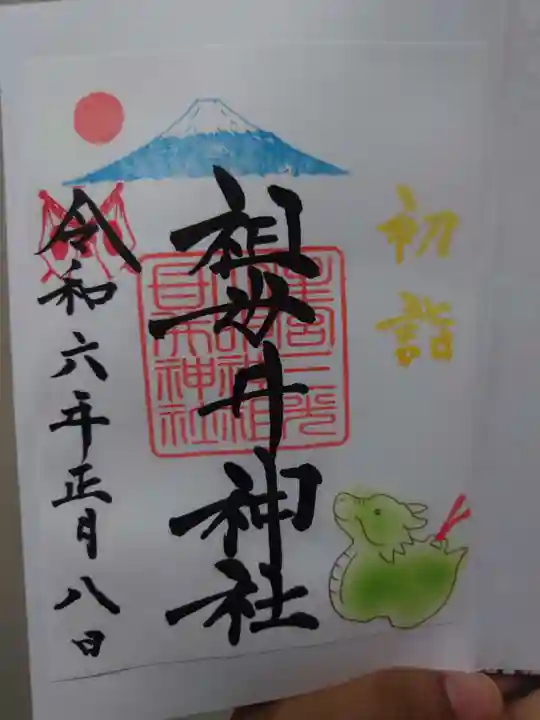 初詣
祖母井神社
令和六年正月八日